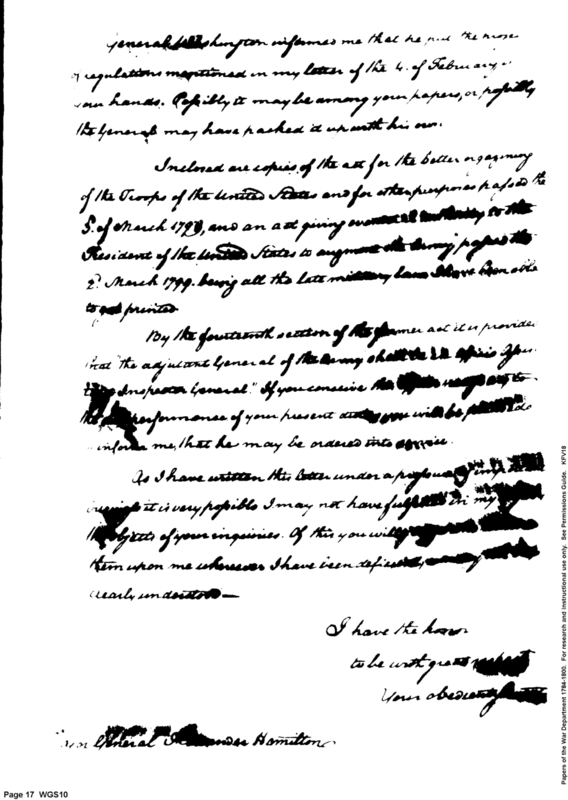 General Washington informed me that he put the
regulations mentioned in my letter of the 4. of February
your hands. Possibly it may be among your papers, or, possibly
the General may have packed it up with his own.
Inclosed are copies of the act for the better organizing
of the Troops of the United States and for other purposes passed the
of March 1799, and an act giving to the
President of the United States to augment the Army passed the
2d March 1799. being all the late military laws I have been able
to get printed
By the fourteenth section of the former act it is provided
that "the adjutant General of the Army shall be
Inspector General." If you conceive the
the performance of your present you will be
inform me, that he may be ordered into service.
As I have written this letter under a pressure
it is very possible I may not have in my
the objects of your inquiries. Of this you will
them upon me wherever I have been
clearly understood—
I have the honor
to be with great respect
Your obedient
General Alexander Hamilton
Page 17 WGS10
Papers of the War Department 1784-1800. For research and instructional use only. See Permissions Guide. KFV18